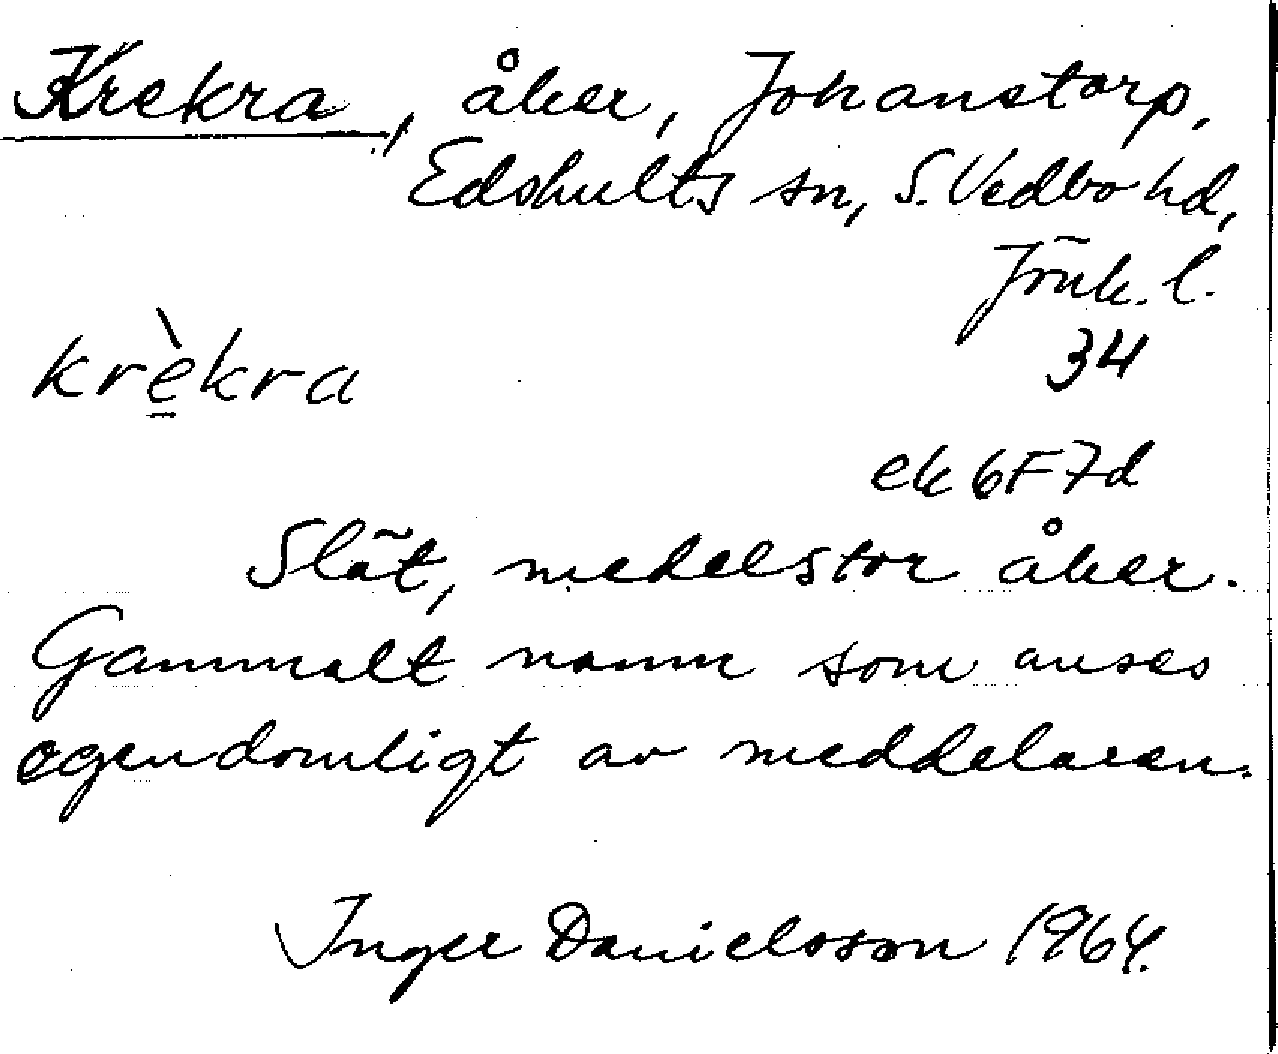 Krekra, åker, Johanstorp,
Edshults sn, S. Vedbo hd,
Jönk. l.
krè̲kra
34
ek 6F7d
Slät, medelstor åker.
Gammalt namn som anses
egendomligt av meddelaren.
Inger Danielsson 1964.